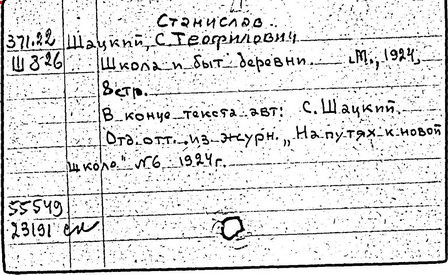 Станислав.
371.22 Шацкий, С. Теофилович
Ш 3-26 Школа и быт деревни. М., 1924.
8 стр.
В конце текста авт: С. Шацкий.
Отд. отт. из журн. „На путях к новой
школе" №6 1924г.
55549
23191 ел